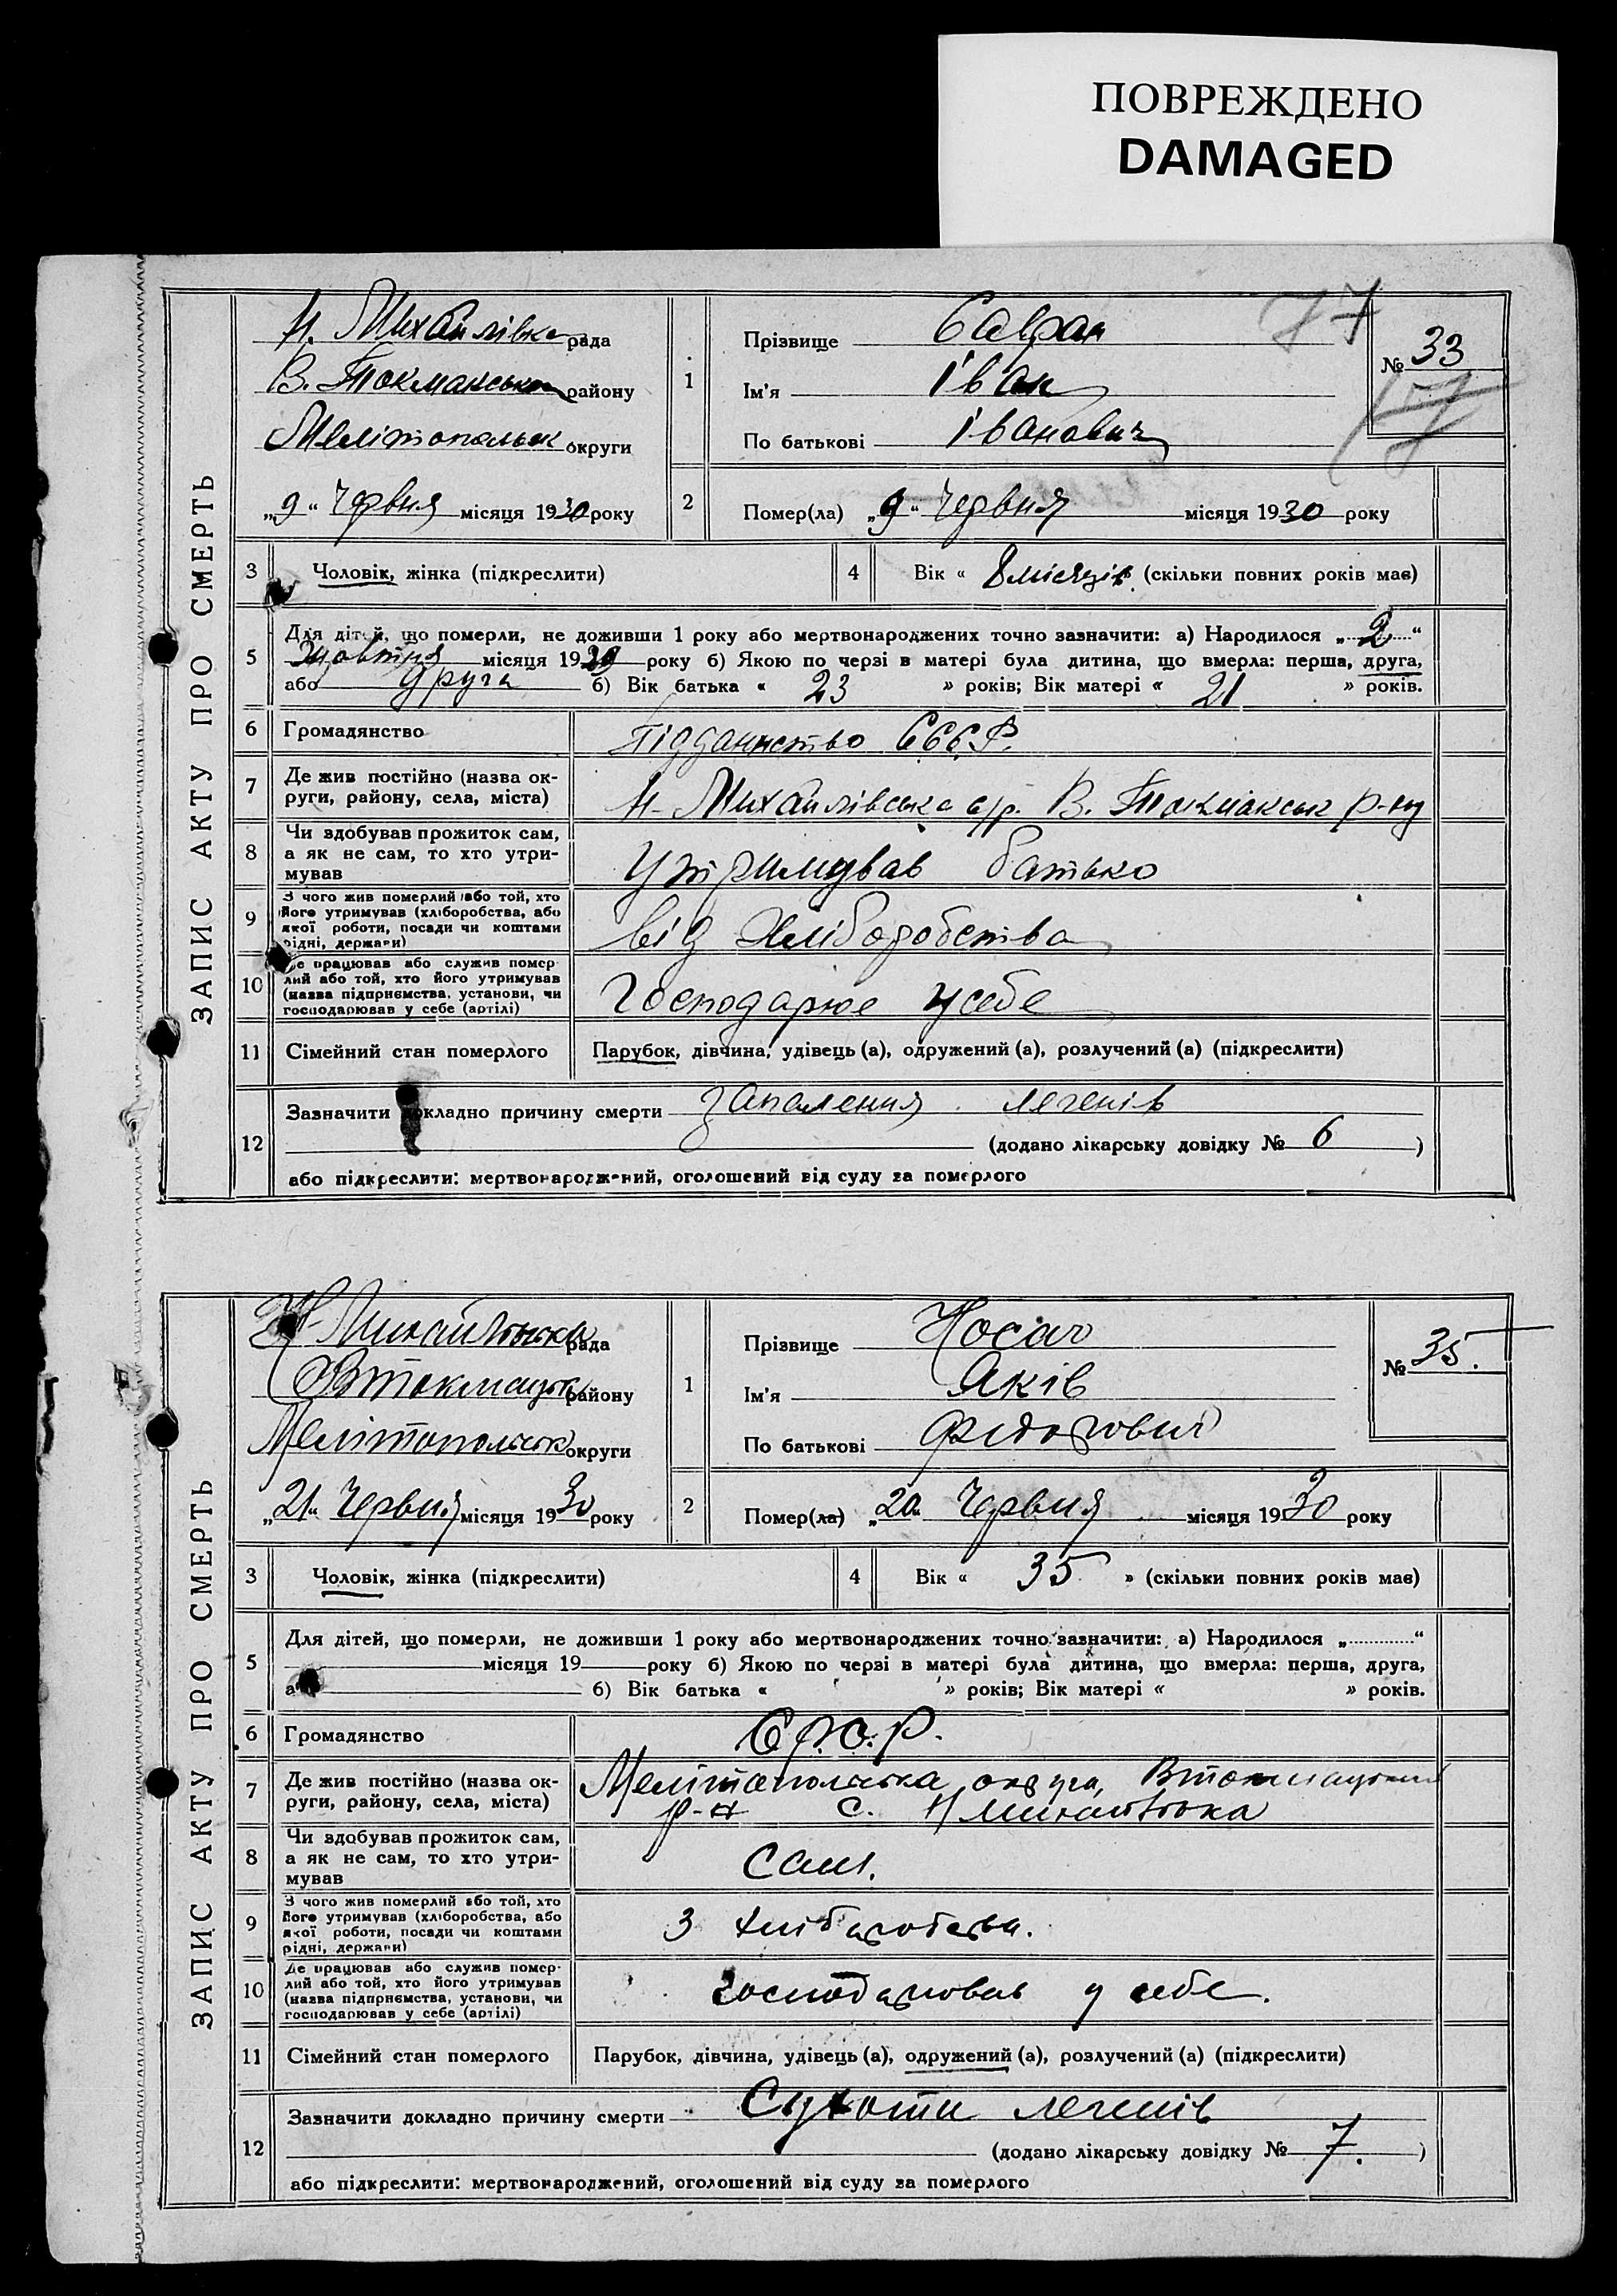 ПОВРЕЖДЕНО
DAMAGED
77
ЗАПИС АКТУ ПРО СМЕРТЬ
Н. Михайлівка рада
В. Токмакська району
Мелітопольск округи
„9“ Червня місяця 1930 року
1
Прізвище Савран
Ім'я Іван
По батькові Іванович
№ 33
2
Помер(ла) „9“ Червня місяця 1930 року
3
Чоловік, жінка (підкреслити)
4
Вік « 8 місяців (скільки повних років має)
5
Для дітей, що померли, не доживши 1 року або мертвонароджених точно зазначити: а) Народилося „2“
Жовтня місяця 1929 року б) Якою по черзі в матері була дитина, що вмерла: перша, друга,
або друга б) Вік батька « 23 » років; Вік матері « 21 » років.
6
Громадянство
Підданнство СССР.
7
Де жив постійно (назва ок-
руги, району, села, міста)
Н-Михайлівська с/р. В. Токмакськ р-ну
8
Чи здобував прожиток сам,
а як не сам, то хто утри-
мував
Утримував батько
9
З чого жив померлий або той, хто
його утримував (хліборобства, або
якої роботи, посади чи коштами
рідні, держави)
від Хліборобства
10
Де працював або служив помер-
лий або той, хто його утримував
(назва підприємства, установи, чи
господарював у себе (артілі)
Господарює у себе
11
Сімейний стан померлого
Парубок, дівчина, удівець (а), одружений (а), розлучений (а) (підкреслити)
12
Зазначити докладно причину смерти запалення легенів
(додано лікарську довідку № 6 )
або підкреслити: мертвонароджений, оголошений від суду за померлого
ЗАПИС АКТУ ПРО СМЕРТЬ
Н-Михайлівська рада
Втокмацьк району
Мелітопольськ округи
„21“ Червня місяця 1930 року
1
Прізвище Носач
Ім'я Яків
По батькові Федорович
№ 35.
2
Помер(ла) „20“ Червня місяця 1930 року
3
Чоловік, жінка (підкреслити)
4
Вік « 35 » (скільки повних років має)
5
Для дітей, що померли, не доживши 1 року або мертвонароджених точно зазначити: а) Народилося „ “
місяця 19 року б) Якою по черзі в матері була дитина, що вмерла: перша, друга,
б) Вік батька « » років; Вік матері « » років.
6
Громадянство
7
Де жив постійно (назва ок-
руги, району, села, міста)
Мелітопольська округа, Втокмацький
р-н с. Н Михайлівка
8
Чи здобував прожиток сам,
а як не сам, то хто утри-
мував
Сам.
9
З чого жив померлий або той, хто
його утримував (хліборобства, або
якої роботи, посади чи коштами
рідні, держави)
З хліборобства.
10
Де працював або служив помер-
лий або той, хто його утримував
(назва підприємства, установи, чи
господарював у себе (артілі)
господарював у себе.
11
Сімейний стан померлого
Парубок, дівчина, удівець (а), одружений (а), розлучений (а) (підкреслити)
12
Зазначити докладно причину смерти Сухоти легенів
(додано лікарську довідку № 7. )
або підкреслити: мертвонароджений, оголошений від суду за померлого